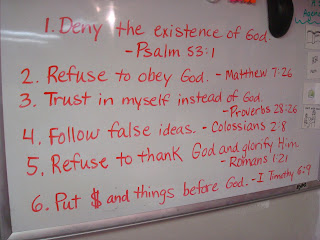 1. Deny the existence of God.
- Psalm 53:1
2. Refuse to obey God. - Matthew 7:26
3. Trust in myself instead of God.
- Proverbs 28:26
4. Follow false ideas. - Colossians 2:8
5. Refuse to thank God and glorify Him.
- Romans 1:21
6. Put $ and things before God. - I Timothy 6:9